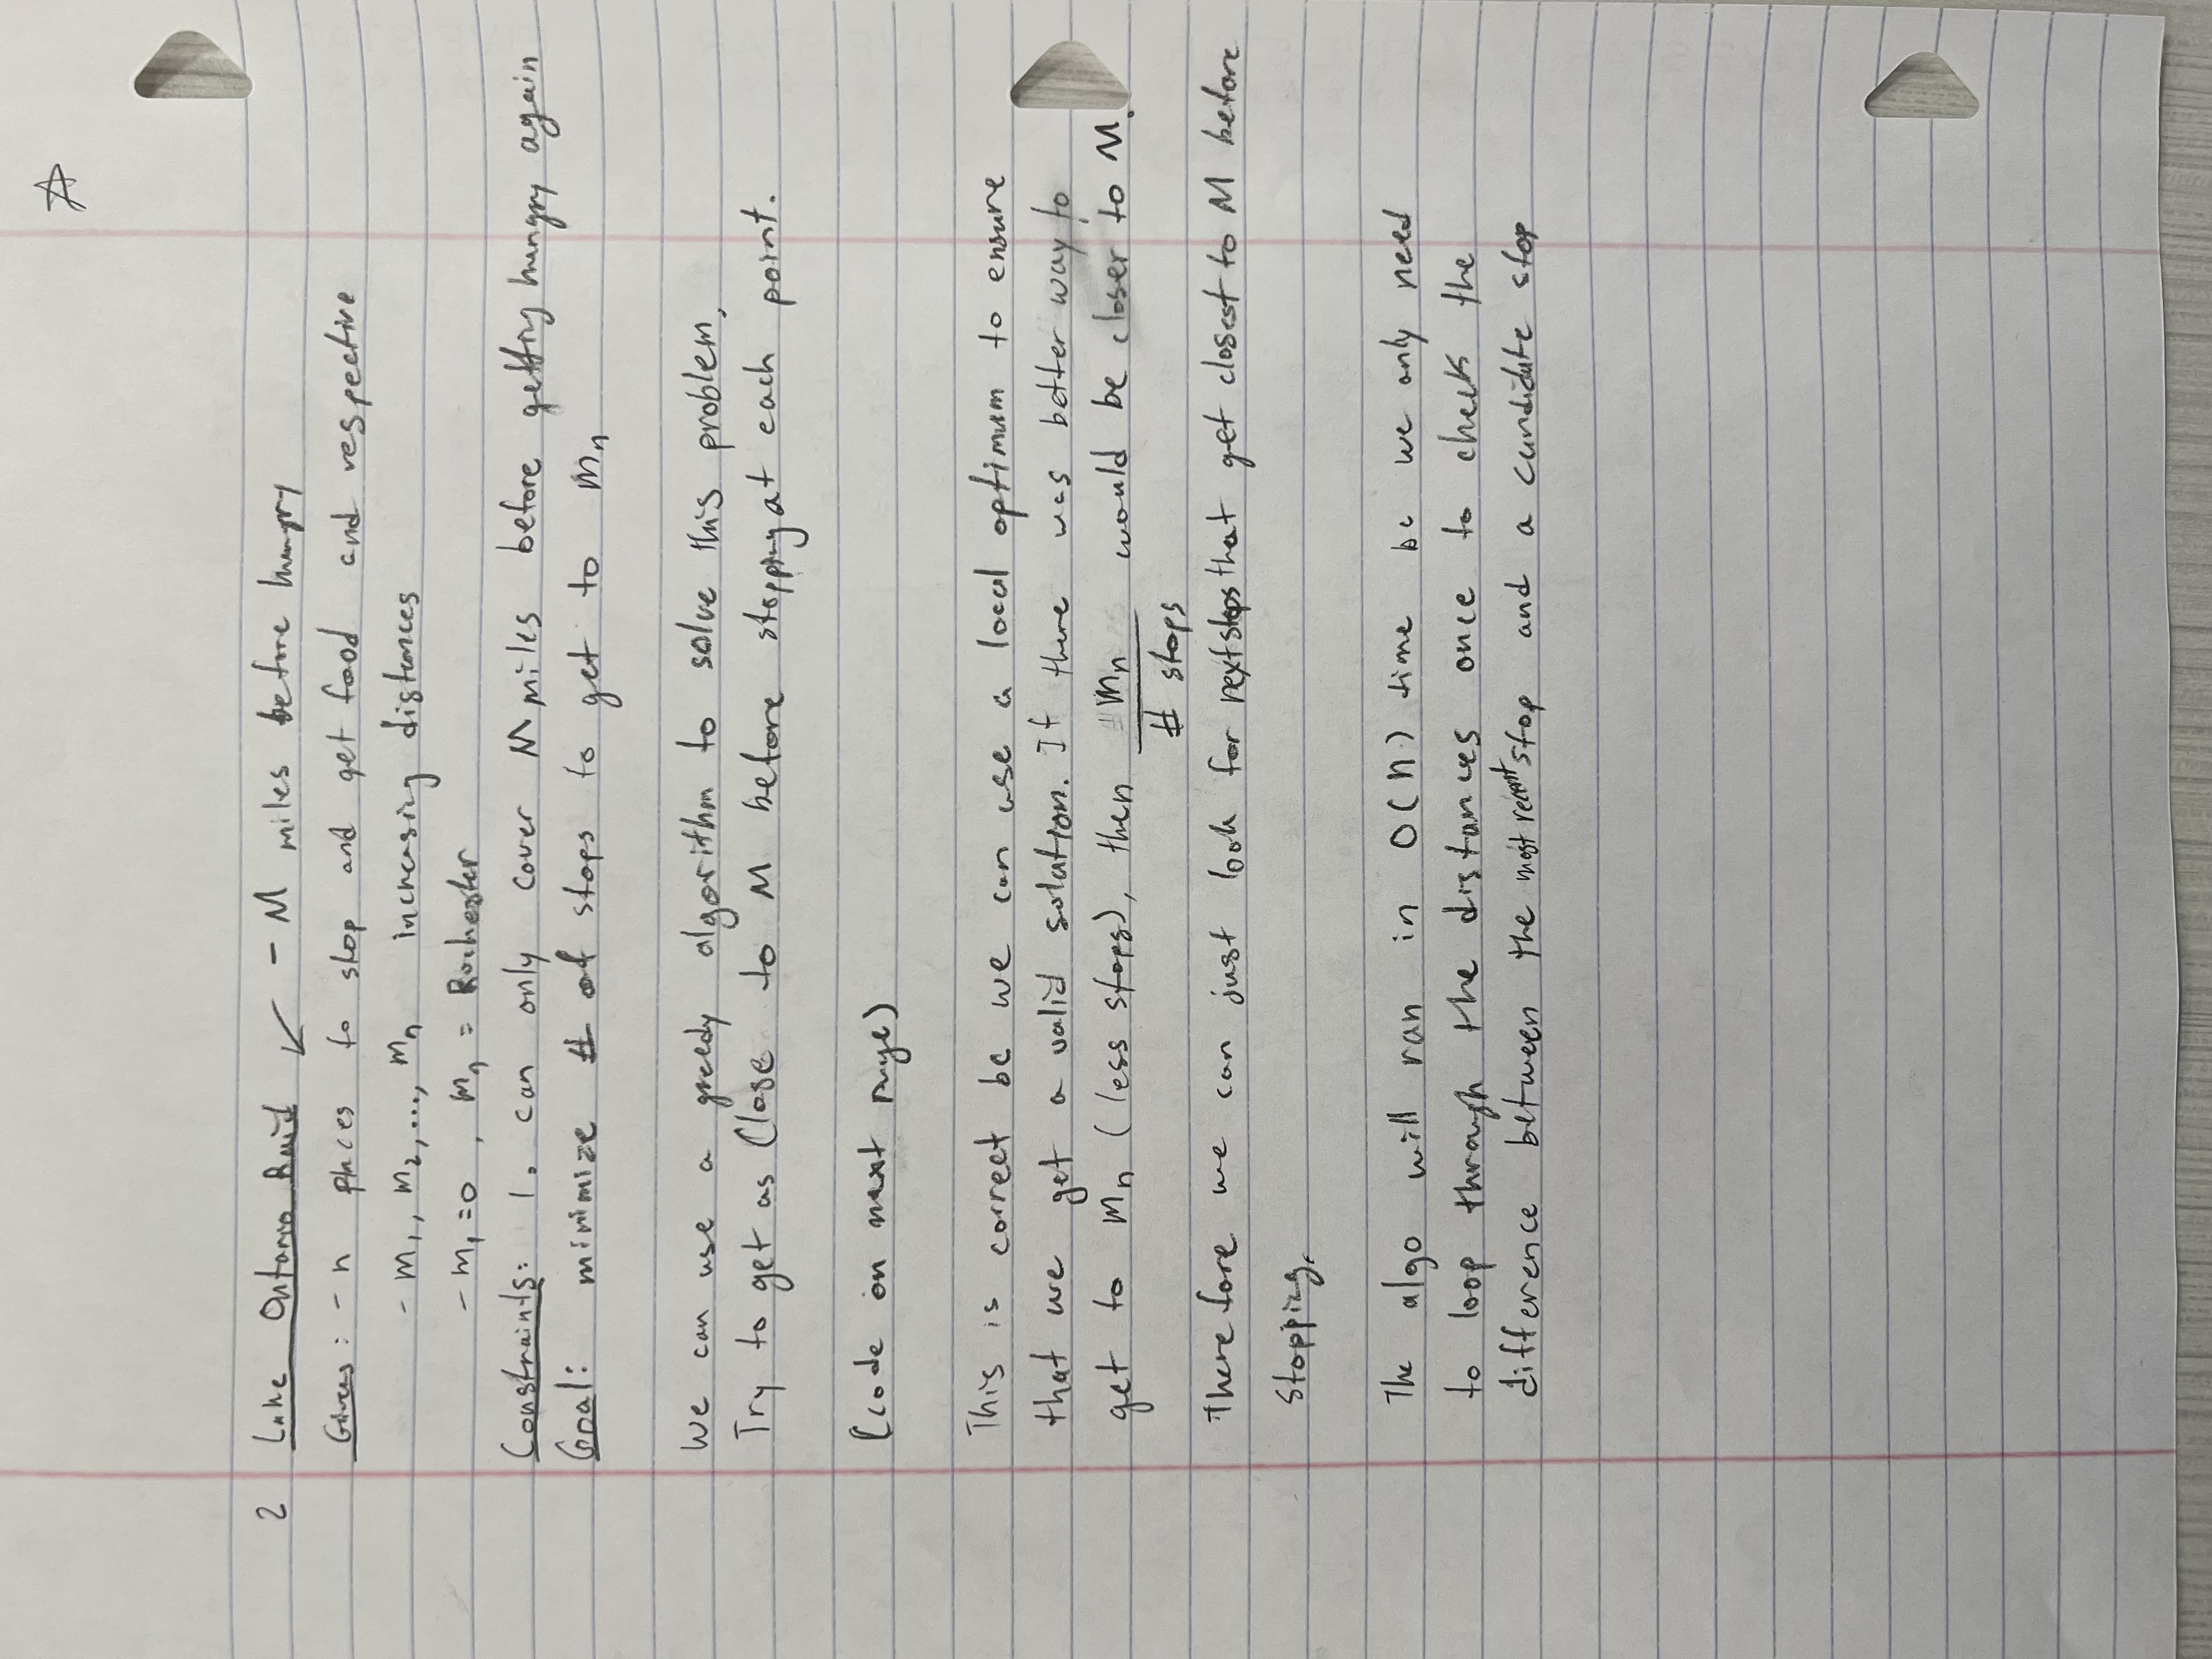 2 Lake Ontario Raid ↙ - M miles before hungry
Givens: - n places to stop and get food and respective
- m₁, m₂, ..., mₙ increasing distances
- m₁ = 0, mₙ = Rochester
Constraints: 1. can only cover M miles before getting hungry again
Goal: minimize # of stops to get to mₙ
We can use a greedy algorithm to solve this problem.
Try to get as close to M before stopping at each point.
(code on next page)
This is correct bc we can use a local optimum to ensure
that we get a valid solution. If there was better way to
get to mₙ (less stops), then mₙ / # stops would be closer to M.
Therefore we can just look for next stops that get closest to M before
stopping.
The algo will run in O(n) time bc we only need
to loop through the distances once to check the
difference between the most recent stop and a candidate stop